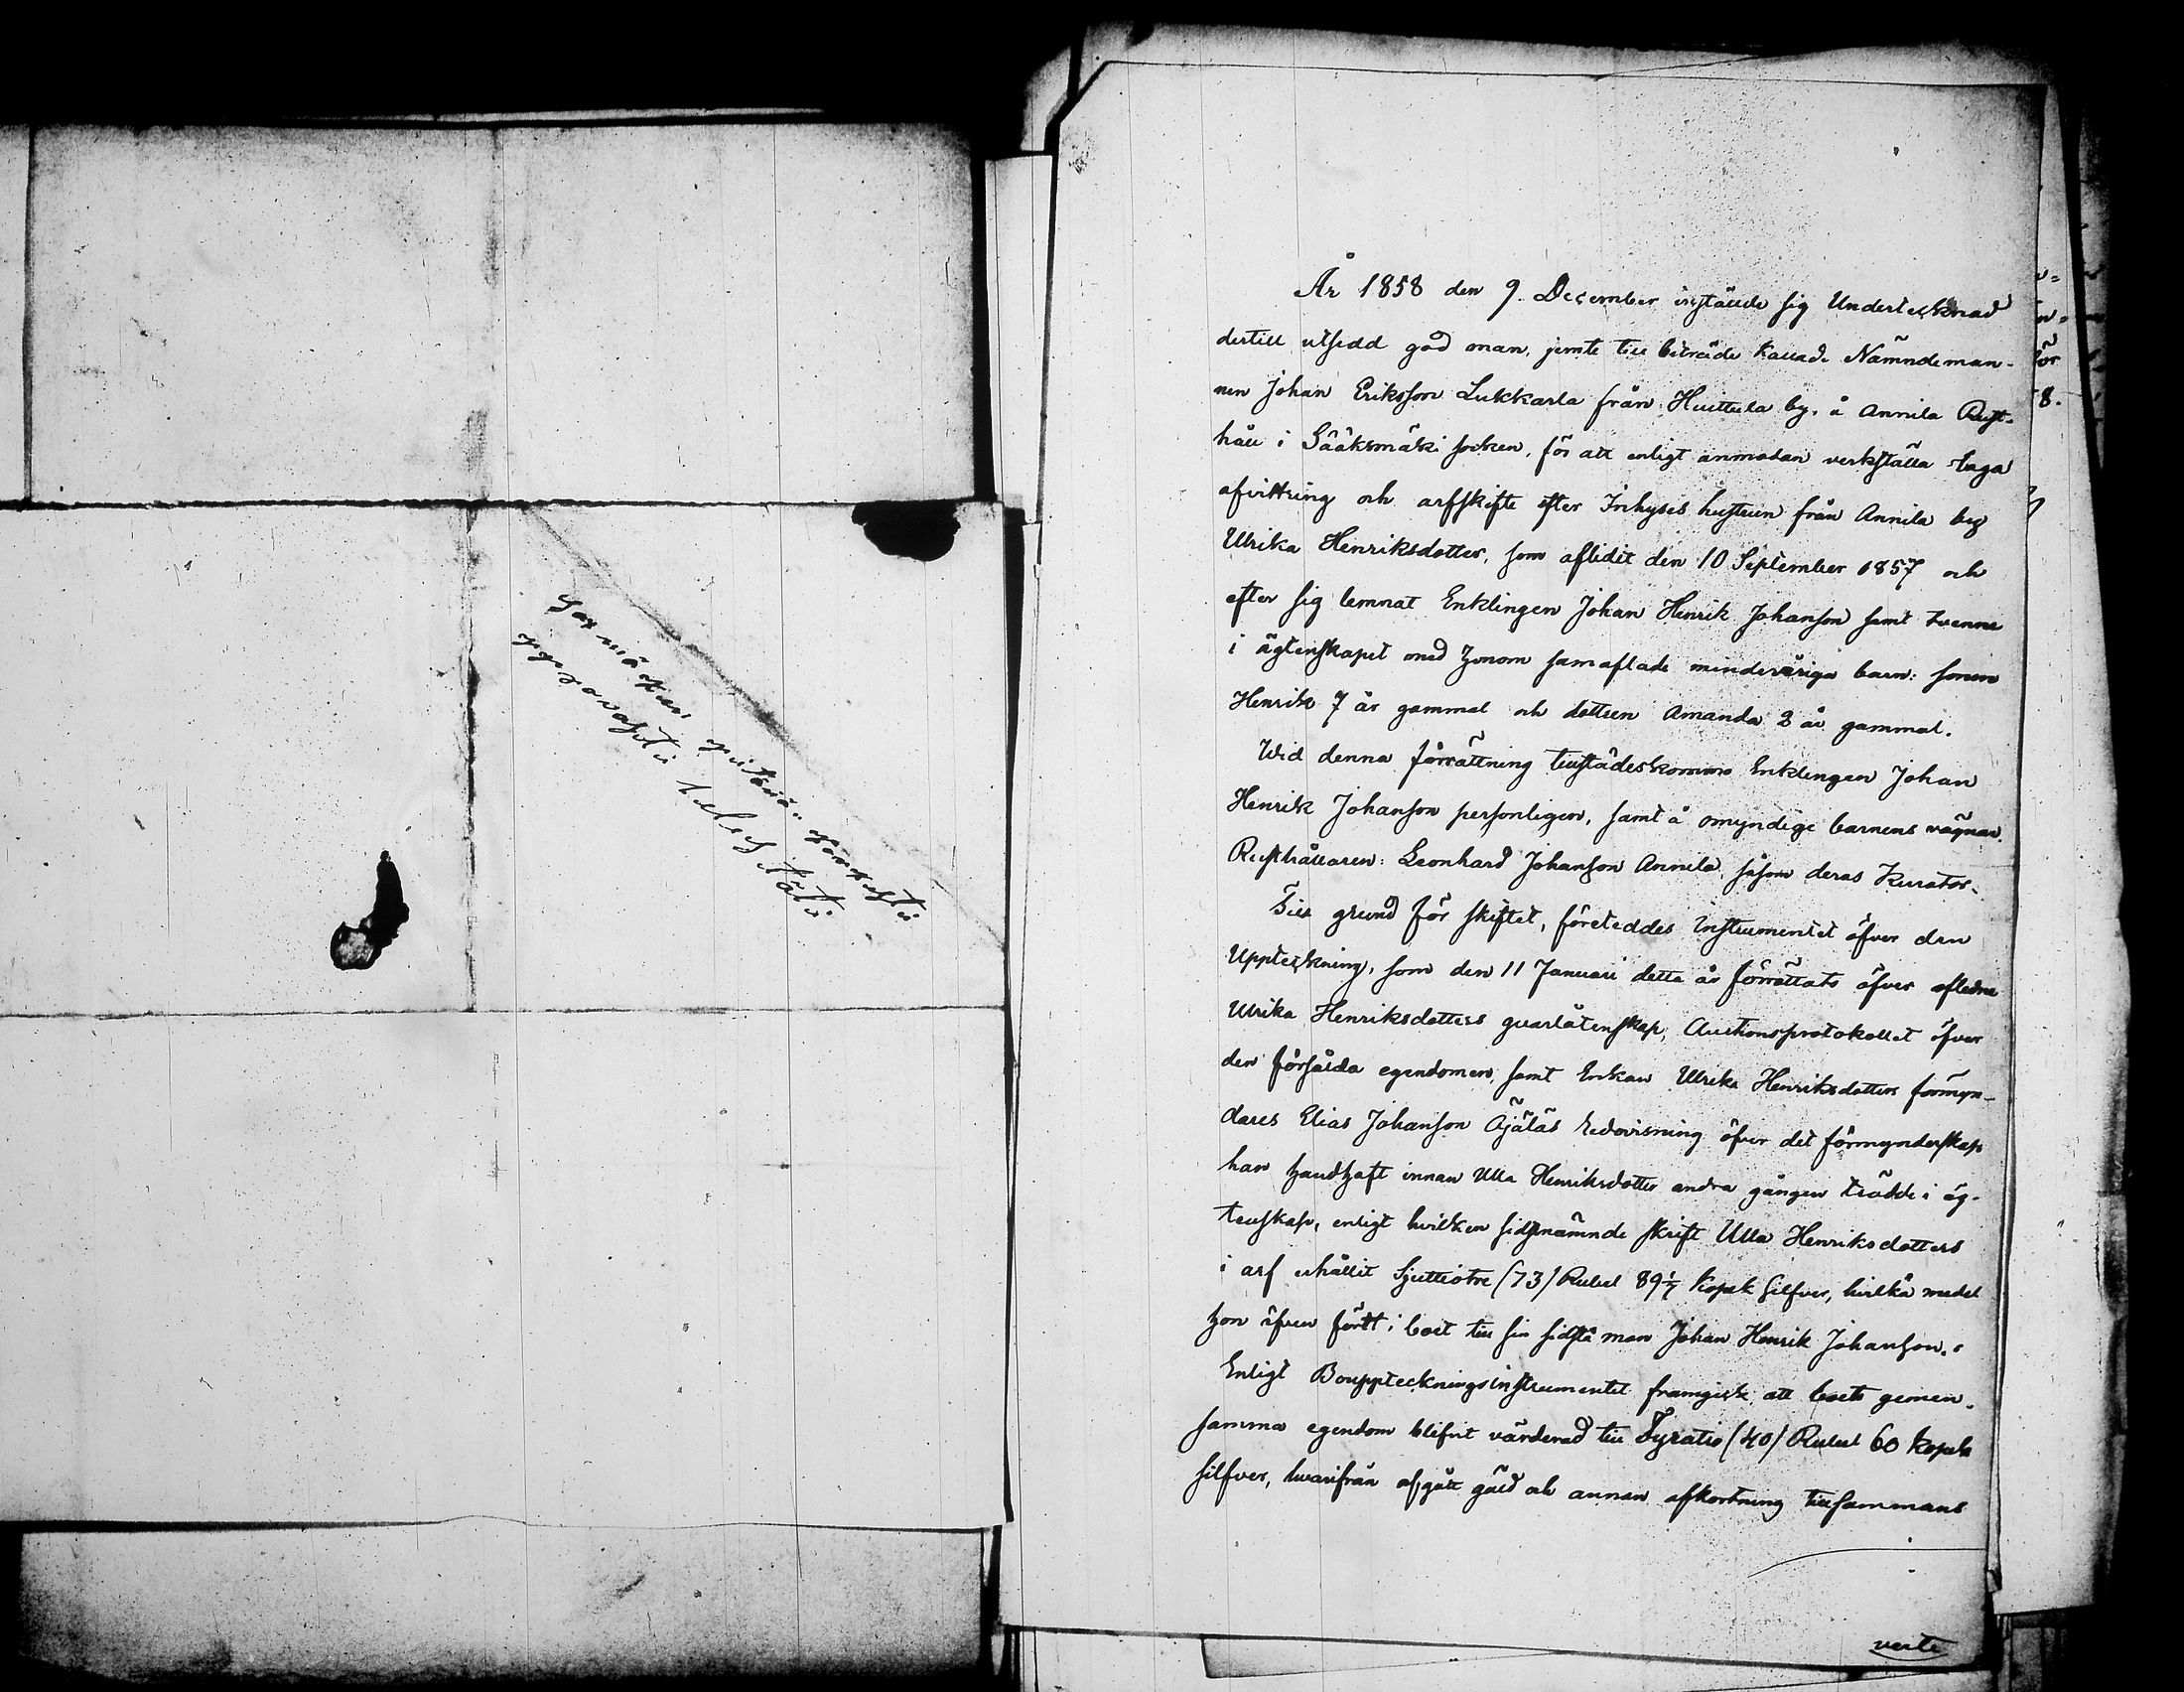 År 1858 den 9. December instälde sig Undertecknad
dertill utsedd god man, jemte till biträde kallade Nämndeman-
nen Johan Eriksson Lukkarla från Huittula by, å Annila Rust-
håll i Sääksmäki socken, för att enligt anmodan verkställa laga
afvittring och arfskifte efter Inhyses hustrun från Annila by
Ulrika Henriksdotter, som aflidit den 10 September 1857 och
efter sig lemnat Enklingen Johan Henrik Johansson samt tvenne
i ägtenskapet med honom samaflade minderåriga barn: sonen
Henrik 7 år gammal och dottren Amanda 2 år gammal.
Wid denna förrättning tillstädeskommo Enklingen Johan
Henrik Johansson personligen, samt å omyndige barnens vägnar
Rusthållaren: Leonhard Johansson Annila, såsom deras Kurator.
Till grund för skiftet, företeddes Instrumentet öfver den
Uppteckning, som den 11 Januari detta år förrättats öfver aflidna
Ulrika Henriksdotters qvarlåtenskap, Auctionsprotokollet öfver
den försålda egendomen, samt Enkan Ulrika Henriksdotters förmyn-
dares Elias Johansson Äjäläs Redovisning öfver det förmynderskap
han handhaft innan Ulla Henriksdotter andra gången trädde i äg-
tenskap, enligt hvilken sidstnämnde skrift Ulla Henriksdotters
i arf erhållit Sjuttiotre (73) Rubel 89 1/7 Kopek Silfver, hvilka medel
hon äfven fört i boet till sin sidsta man Johan Henrik Johansson.
Enligt Bouppteckningsinstrumentet framgick att boets gemen-
samma egendom blifvit värderad till Fyratio (40) Rubel 60 Kopek
silfver, hvarifrån afgått gäld och annan afkortning tillsammans
verte